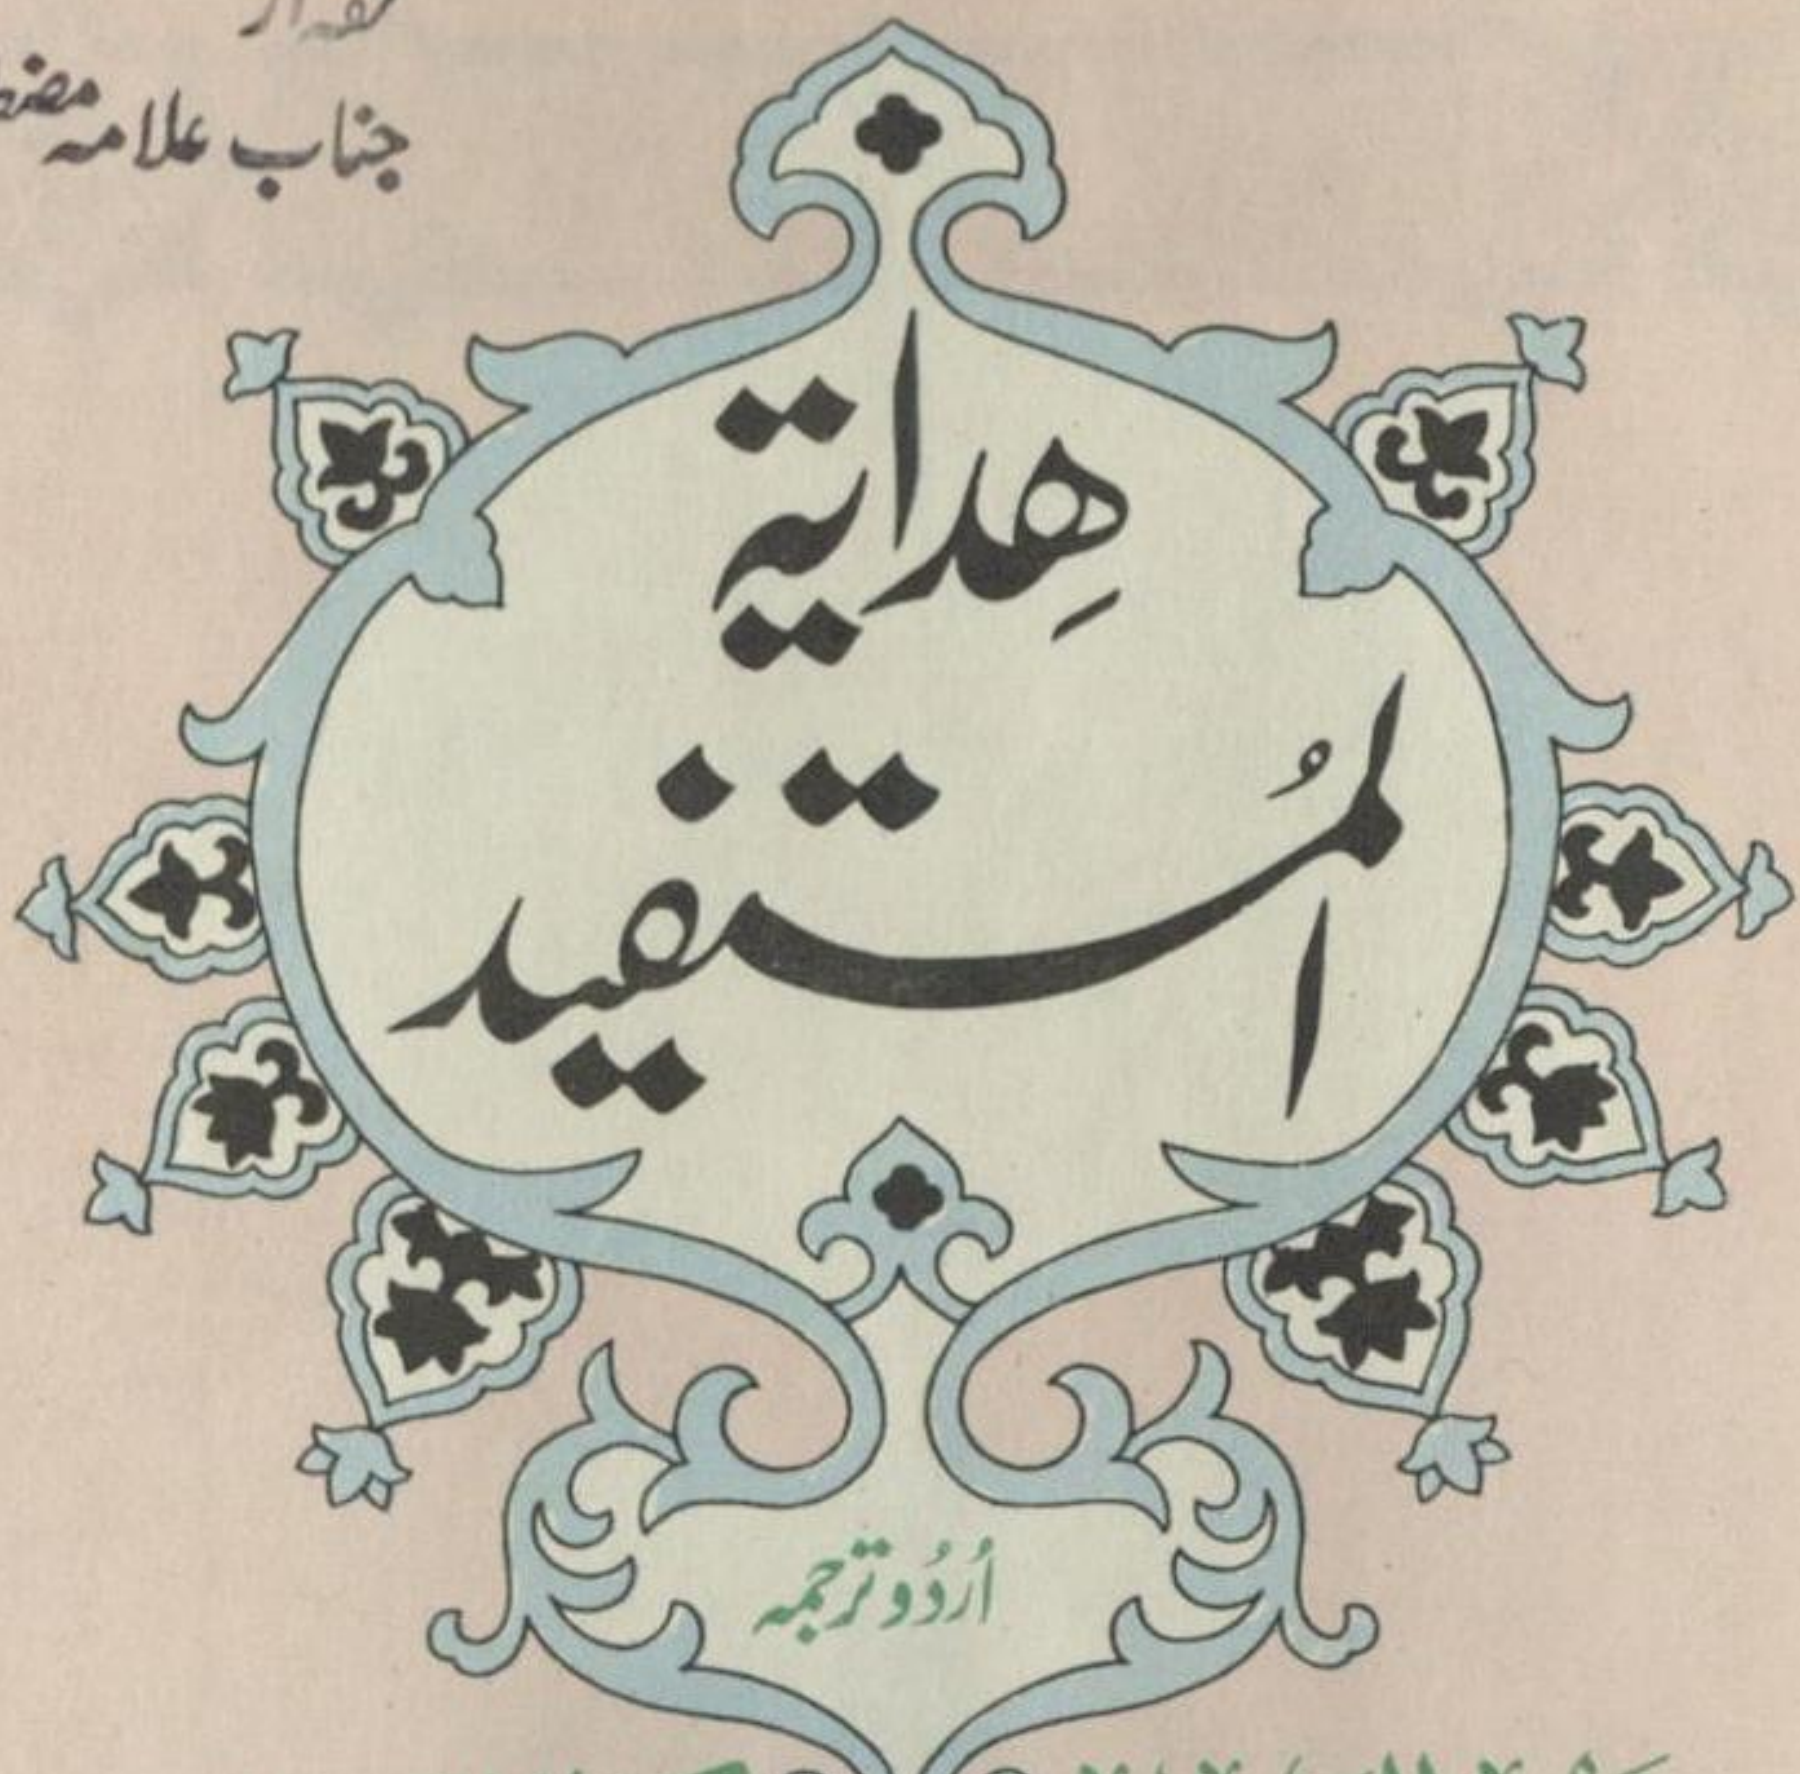 جناب علامہ
هِدایۃ
المُستفید
اُردُو ترجمہ